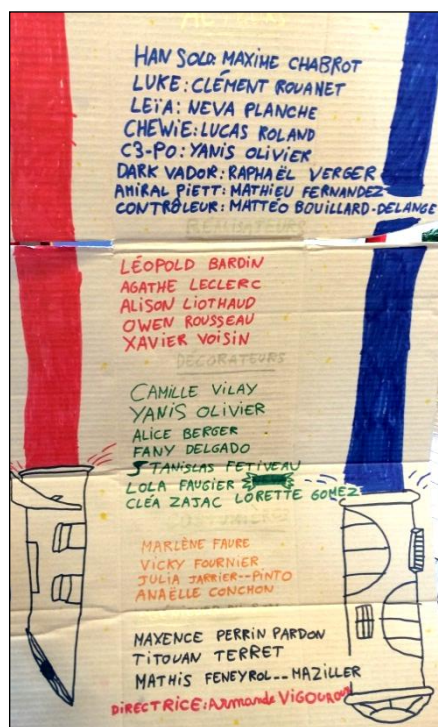 HAN SOLO: MAXIME CHABROT
LUKE: CLÉMENT ROUANET
LEÏA: NEVA PLANCHE
CHEWIE: LUCAS ROLAND
C3-PO: YANIS OLIVIER
DARK VADOR: RAPHAËL VERGER
AMIRAL PIETT: MATHIEU FERNANDEZ
CONTRÔLEUR: MATTÉO BOUILLARD-DELANGE
RÉALISATEURS
LÉOPOLD BARDIN
AGATHE LECLERC
ALISON LIOTHAUD
OWEN ROUSSEAU
XAVIER VOISIN
DÉCORATEURS
CAMILLE VILAY
YANIS OLIVIER
ALICE BERGER
FANY DELGADO
STANISLAS FETIVEAU
LOLA FAUGIER
CLÉA ZAJAC LORETTE GOMEZ
COSTUMIERS
MARLÈNE FAURE
VICKY FOURNIER
JULIA JARRIER--PINTO
ANAËLLE CONCHON
MAXENCE PERRIN PARDON
TITOUAN TERRET
MATHIS FENEYROL--MAZILLER
DIRECTRICE: Armande VIGOUROUX